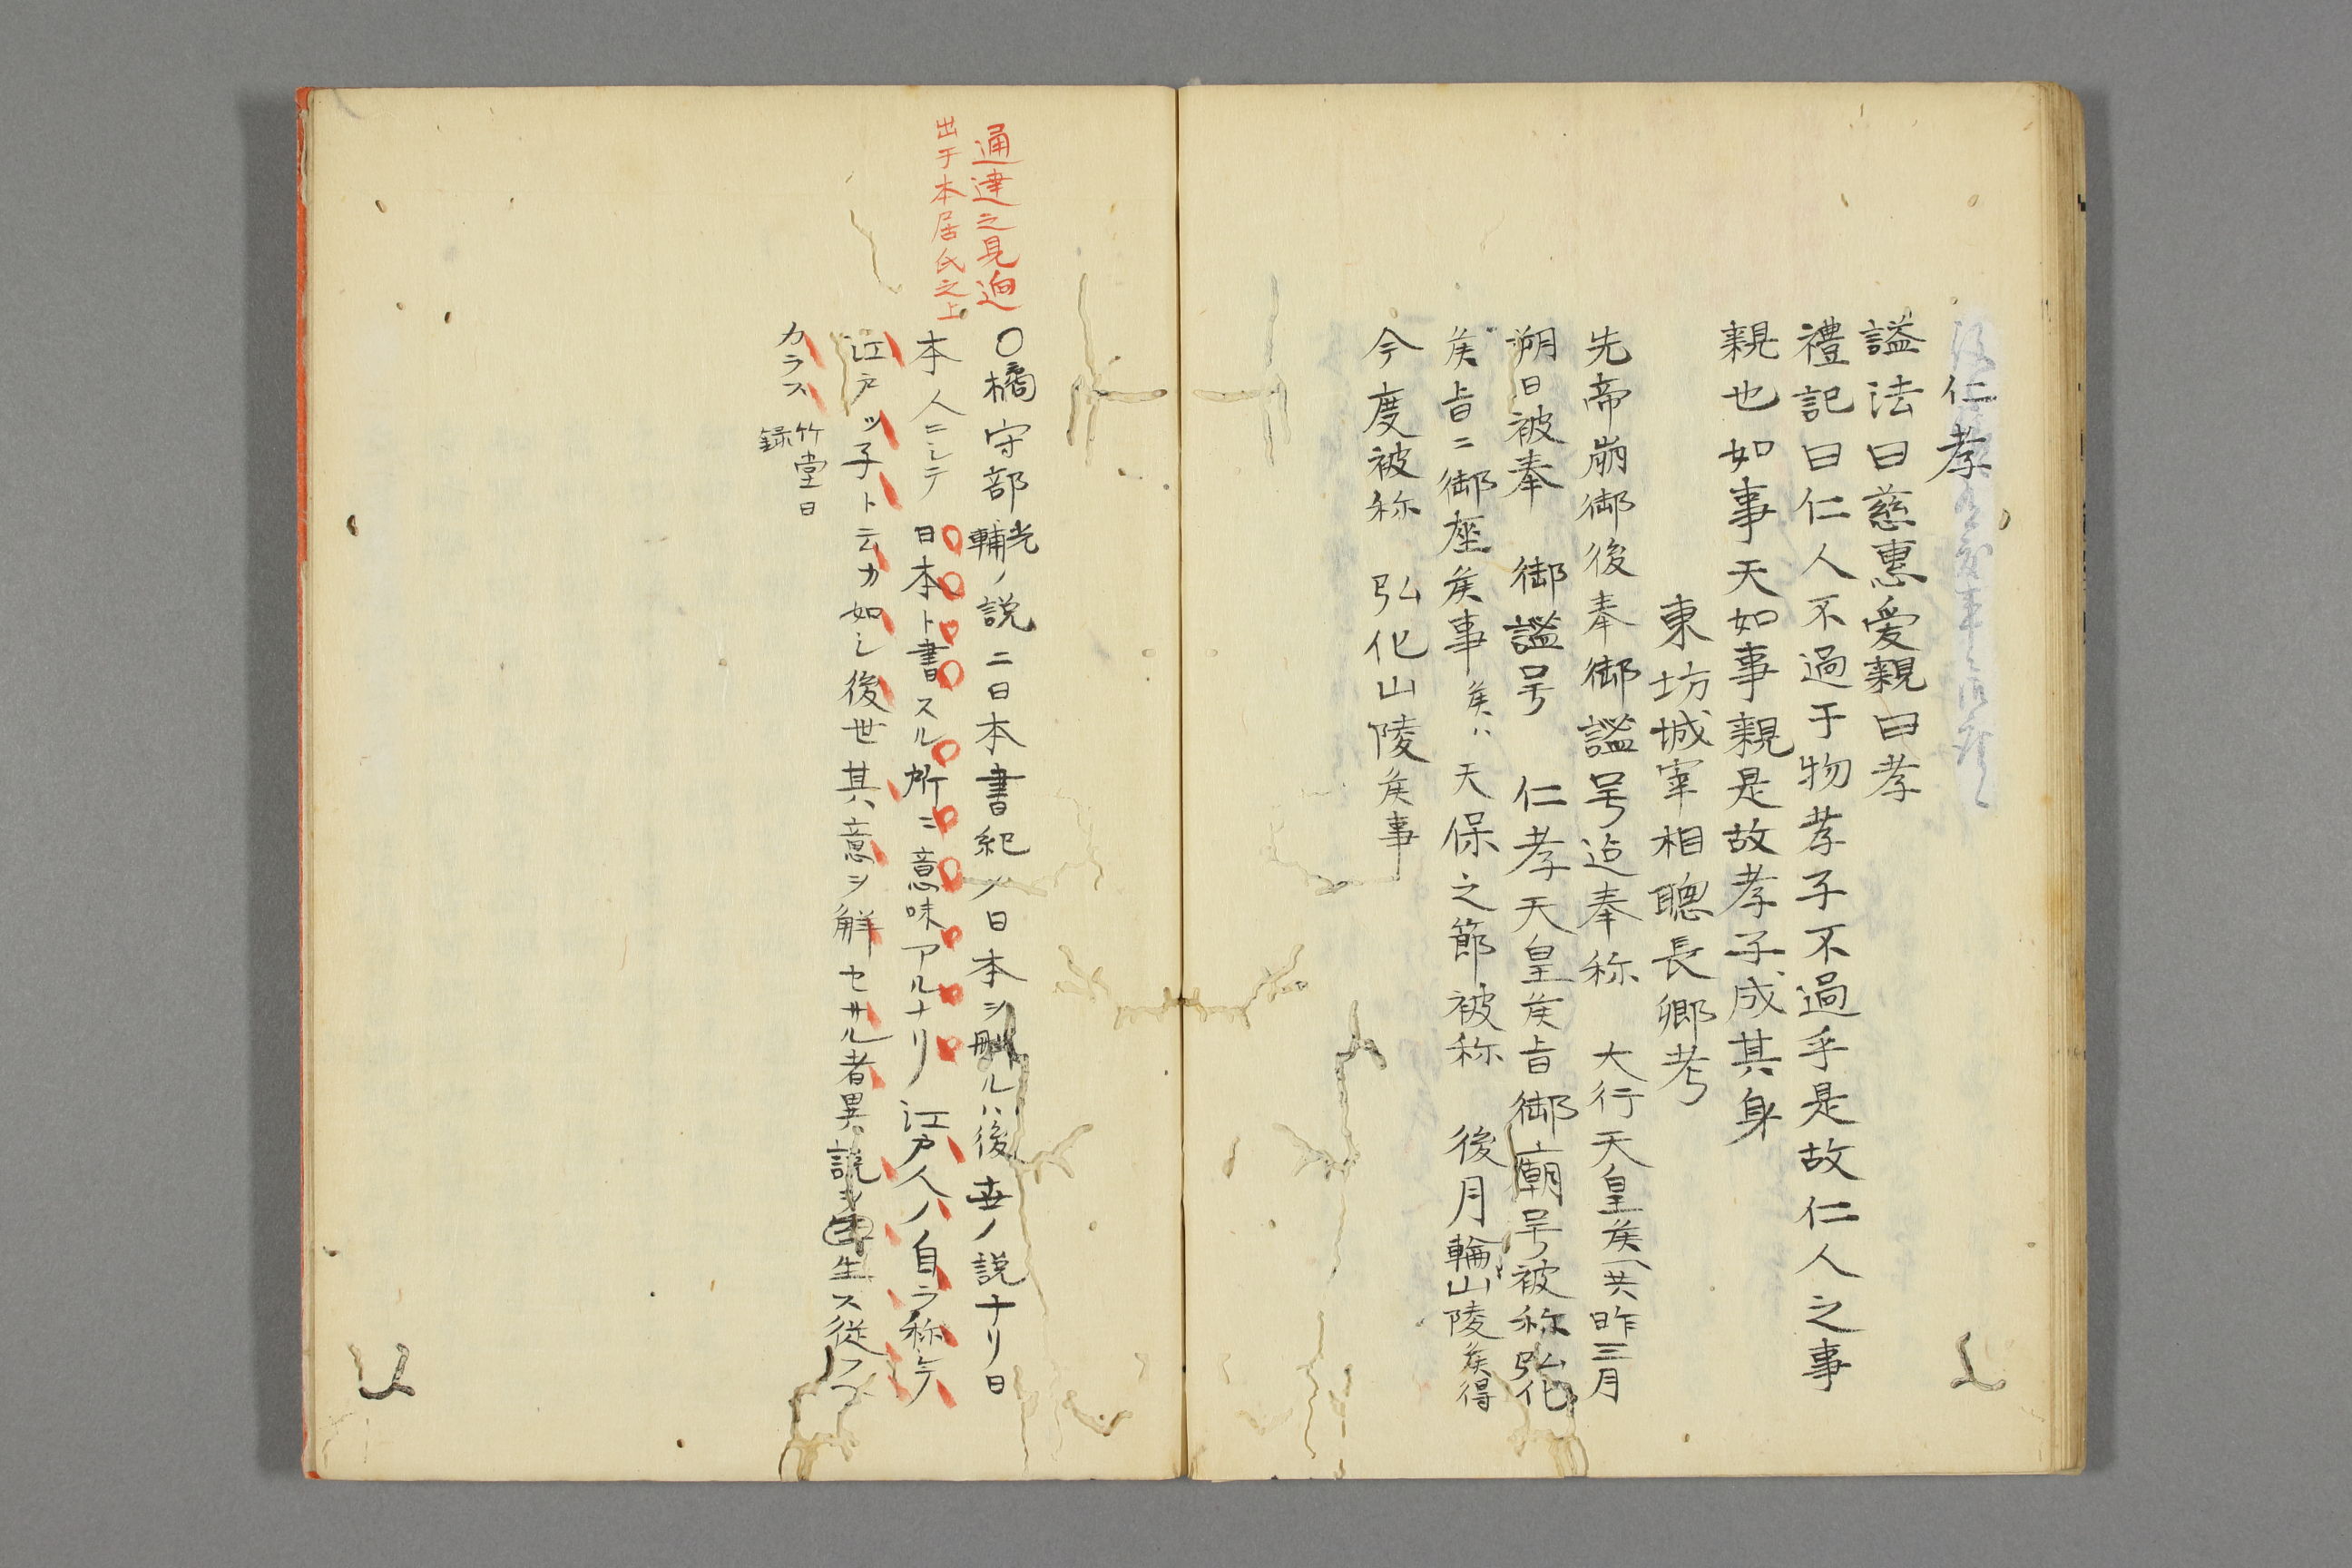 仁孝
謚法曰慈惠愛親曰孝
禮記曰仁人不過于物孝子不過乎是故仁人之事
親也如事天如事親是故孝子成其身
東坊城宰相聰長卿考
先帝崩御後奉御謚号迠奉称 大行天皇矦共昨三月
朔日被奉 御謚号 仁孝天皇矦旨御廟号被称弘化
矦旨ニ御座矦事矦ハ天保之節被称 後月輪山陵矦得
今度被称 弘化山陵矦事
通達之見逈
出于本居氏之上
〇橘守部光輔ノ説ニ日本書紀ノ日本ヲ削ルハ後世ノ説ナリ日
本人ニシテ日本ト書スル所ニ意味アルナリ江戸人ノ自ラ称シテ
江戸ッ子ト云カ如シ後世其意ヲ解セサル者異説ヲ生ス従フヘ
カラス 竹堂日録